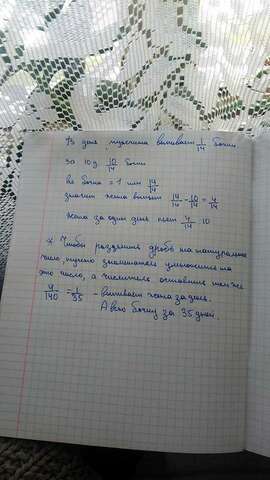 В день мужчина выпивает 1/14 бочки
за 10 д 10/14 бочки
Вс бочка = 1 или 14/14
значит жена выпьет 14/14 - 10/14 = 4/14
Жена за один день пьет 4/14 : 10
* Чтобы разделить дробь на натуральное
число, нужно знаменатель умножить на
это число, а числитель оставить тем же
4/140 = 1/35 - выпивает жена за день.
А всю бочку за 35 дней.